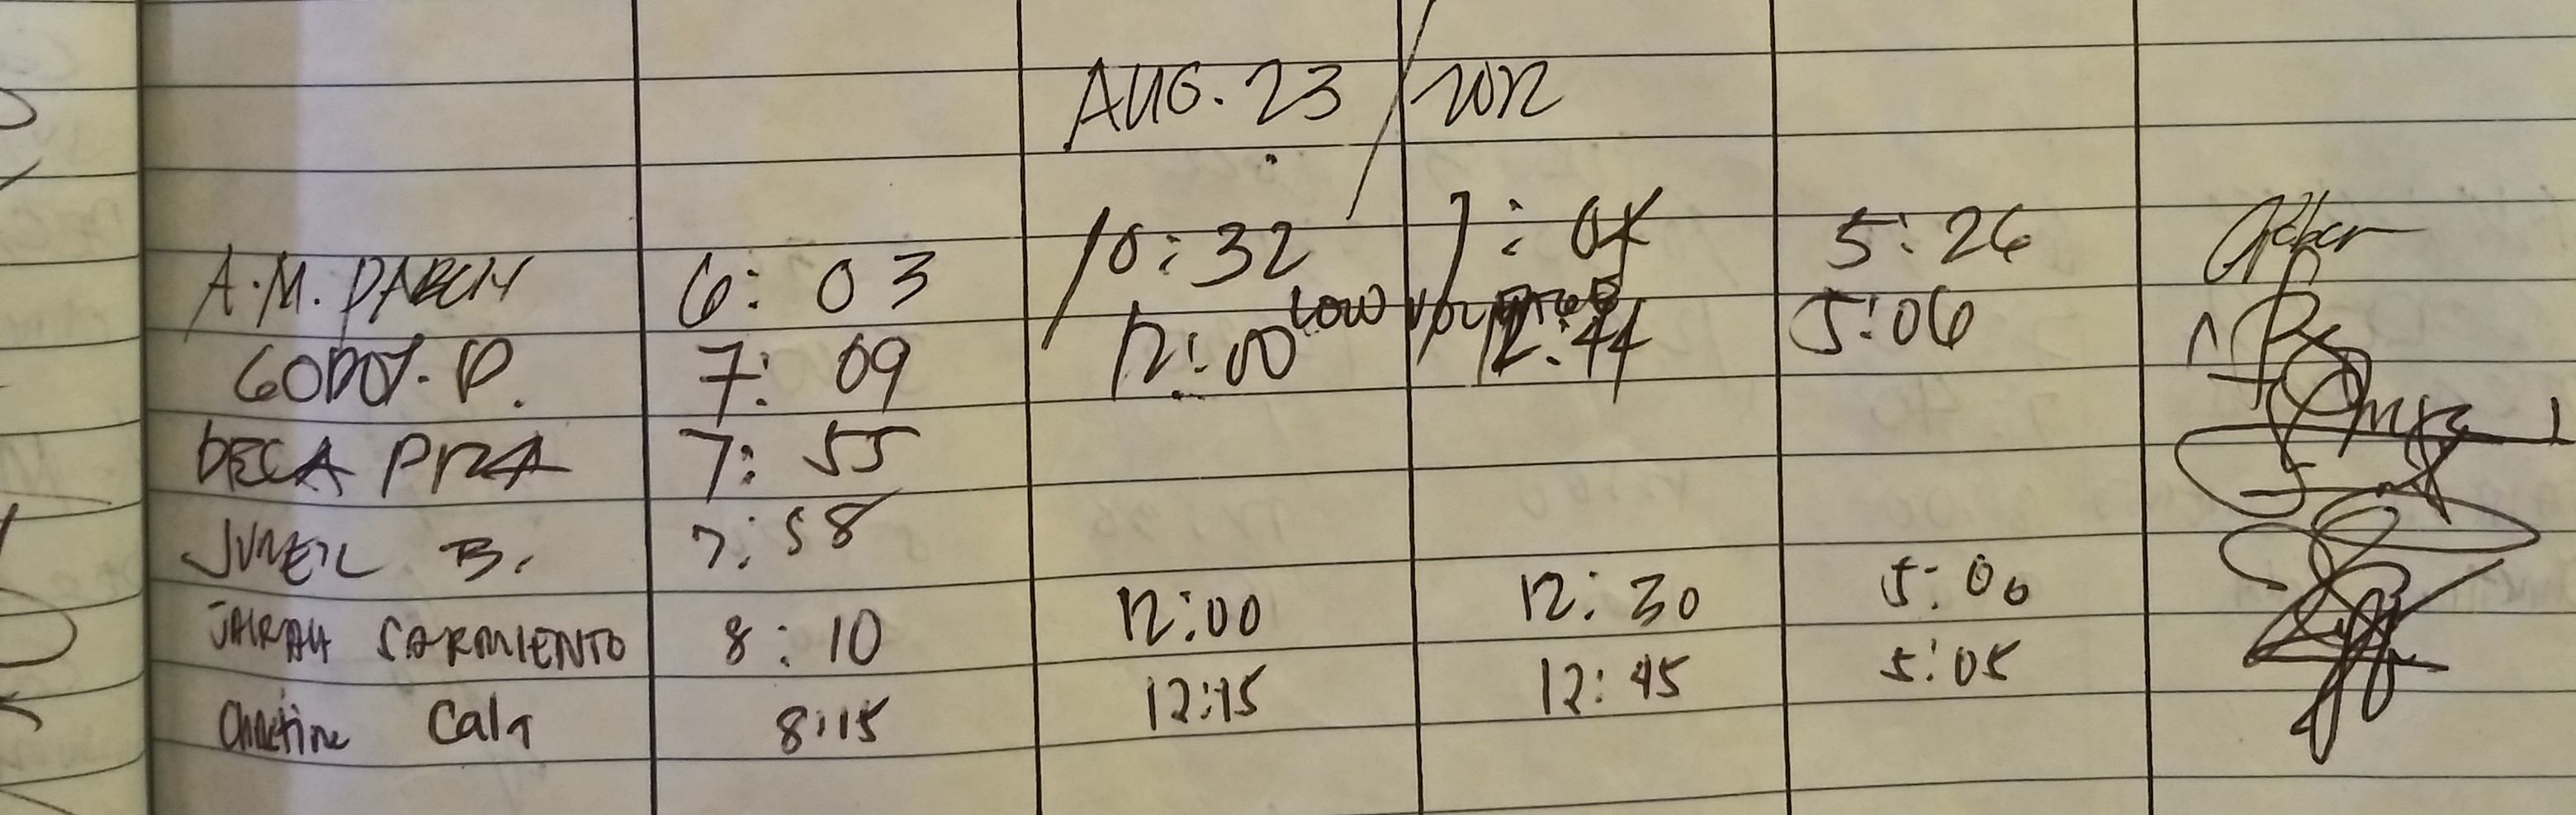 AUG. 23 / 2022
A.M. 6:03 10:32 5:26
GODOY. D. 7:09 12:00 12:44 5:06
DECA 7:55
JUNEIL B. 7:58
JAIRAH SARMIENTO 8:10 12:00 12:30 5:00
Christine Cala 8:15 12:15 12:45 5:05